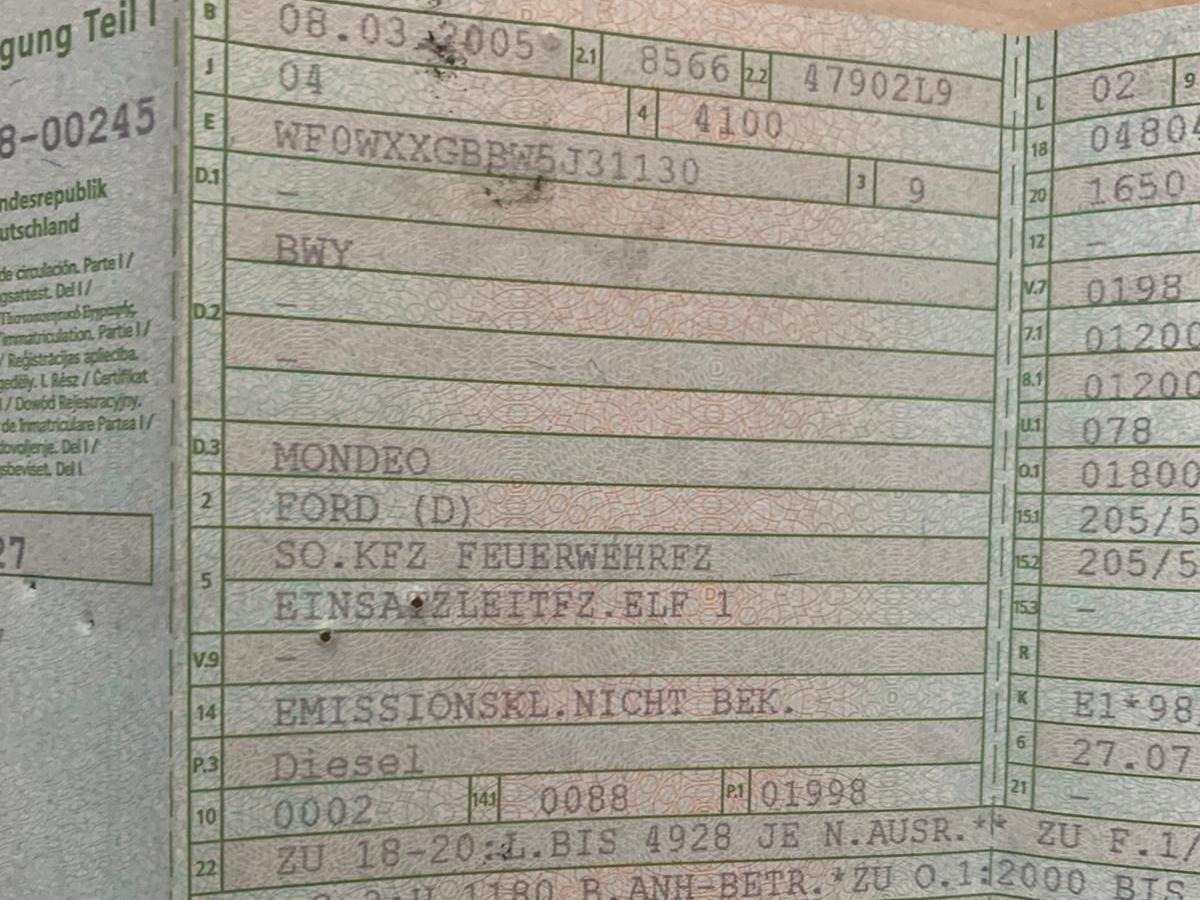 gung Teil I
8-00245
ndesrepublik
utschland
de circulación. Parte I /
gsattest. Del I /
immatriculation. Partie I /
/ Reģistrācijas apliecība.
gedély. I. Rész / Certifikat
I / Dowód Rejestracyjny.
de Inmatriculare Partea I /
dovoljenje. Del I /
gsbeviset. Del I
27
B 08.03.2005 2.1 8566 2.2 47902L9
J 04 4 4100
E WF0WXXGBBW5J31130 3 9
D.1 –
BWY
D.2 –
–
D.3 MONDEO
2 FORD (D)
5 SO.KFZ FEUERWEHRFZ
EINSATZLEITFZ.ELF 1
V.9 –
14 EMISSIONSKL.NICHT BEK.
P.3 Diesel
10 0002 14.1 0088 P.1 01998
22 ZU 18-20:L.BIS 4928 JE N.AUSR.** ZU F.1/
1180 B.ANH-BETR.*ZU O.1:2000 BIS
L 02 9
18 0480
20 1650
12 –
V.7 0198
7.1 01200
8.1 01200
U.1 078
O.1 01800
15.1 205/5
15.2 205/5
15.3 –
R
K E1*98
6 27.07
21 –